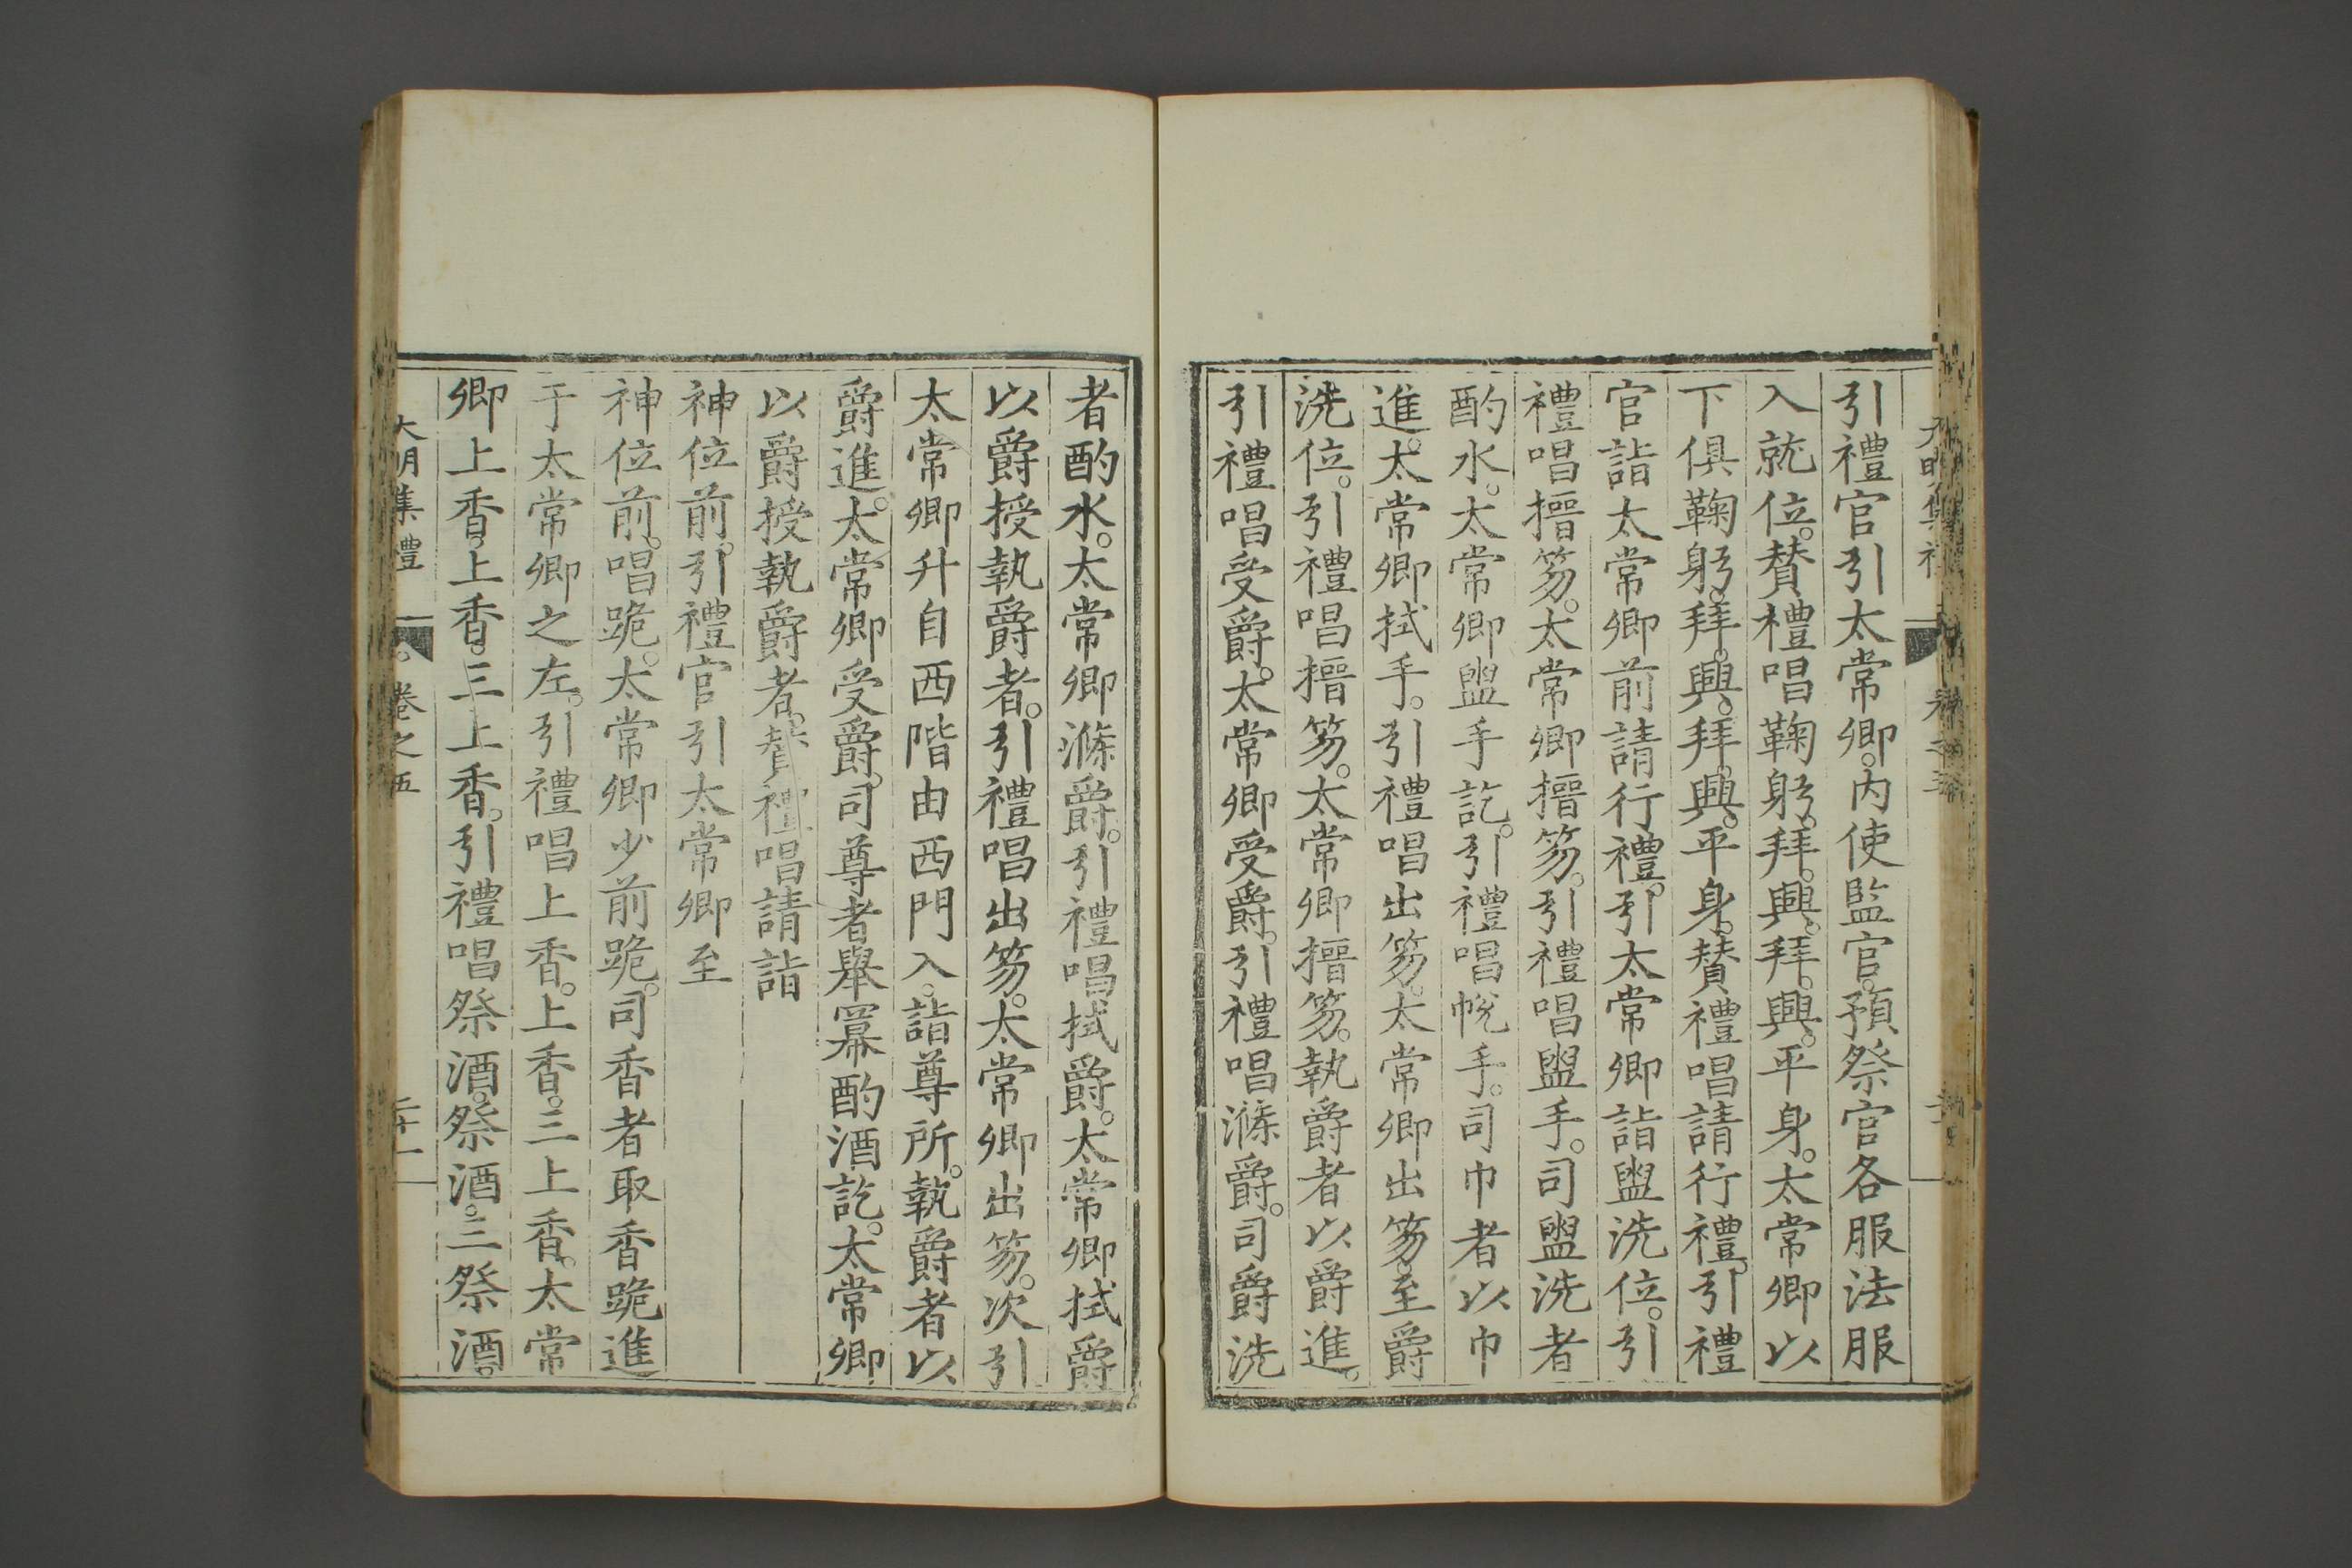 引禮官引太常卿。内使監官。預祭官各服法服
入就位。賛禮唱鞠躬。拜。興。拜。興。平身。太常卿以
下俱鞠躬。拜。興。拜。興。平身。賛禮唱請行禮。引禮
官詣太常卿前請行禮。引太常卿詣盥洗位。引
禮唱搢笏。太常卿搢笏。引禮唱盥手。司盥洗者
酌水。太常卿盥手訖。引禮唱帨手。司巾者以巾
進。太常卿拭手。引禮唱出笏。太常卿出笏。至爵
洗位。引禮唱搢笏。太常卿搢笏。執爵者以爵進。
引禮唱受爵。太常卿受爵。引禮唱滌爵。司爵洗
者酌水。太常卿滌爵。引禮唱拭爵。太常卿拭爵
以爵授執爵者。引禮唱出笏。太常卿出笏。次引
太常卿升自西階由西門入。詣尊所。執爵者以
爵進。太常卿受爵。司尊者舉冪酌酒訖。太常卿
以爵授執爵者。賛禮唱請詣
神位前。引禮官引太常卿至
神位前。唱跪。太常卿少前跪。司香者取香跪進
于太常卿之左。引禮唱上香。上香。三上香。太常
卿上香。上香。三上香。引禮唱祭酒。祭酒。三祭酒。
大明集禮 卷之五 二十一